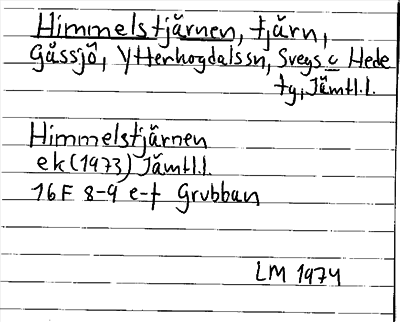 Himmelstjärnen, tjärn,
Gåssjö, Ytterhogdalssn, Svegs o Hede
tg, Jämtl.l.
Himmelstjärnen
ek (1973) Jämtl.l.
16F 8-9 e-f Grubban
LM 1974